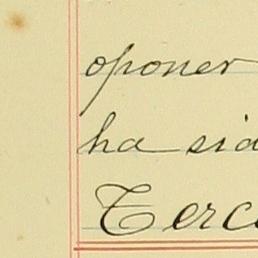 oponer
ha sid
Terc